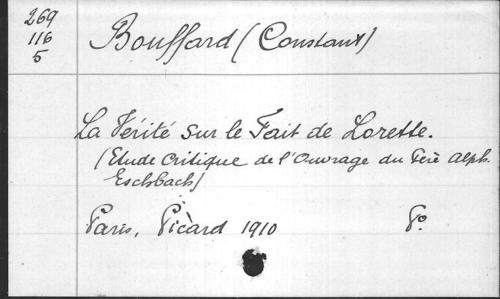 269
116
5
Bouffard (Constant)
La Vérité sur le Fait de Lorette.
(Etude Critique de l'Ouvrage du Père Alph.
Eschbach)
Paris, Picard 1910 Fo.